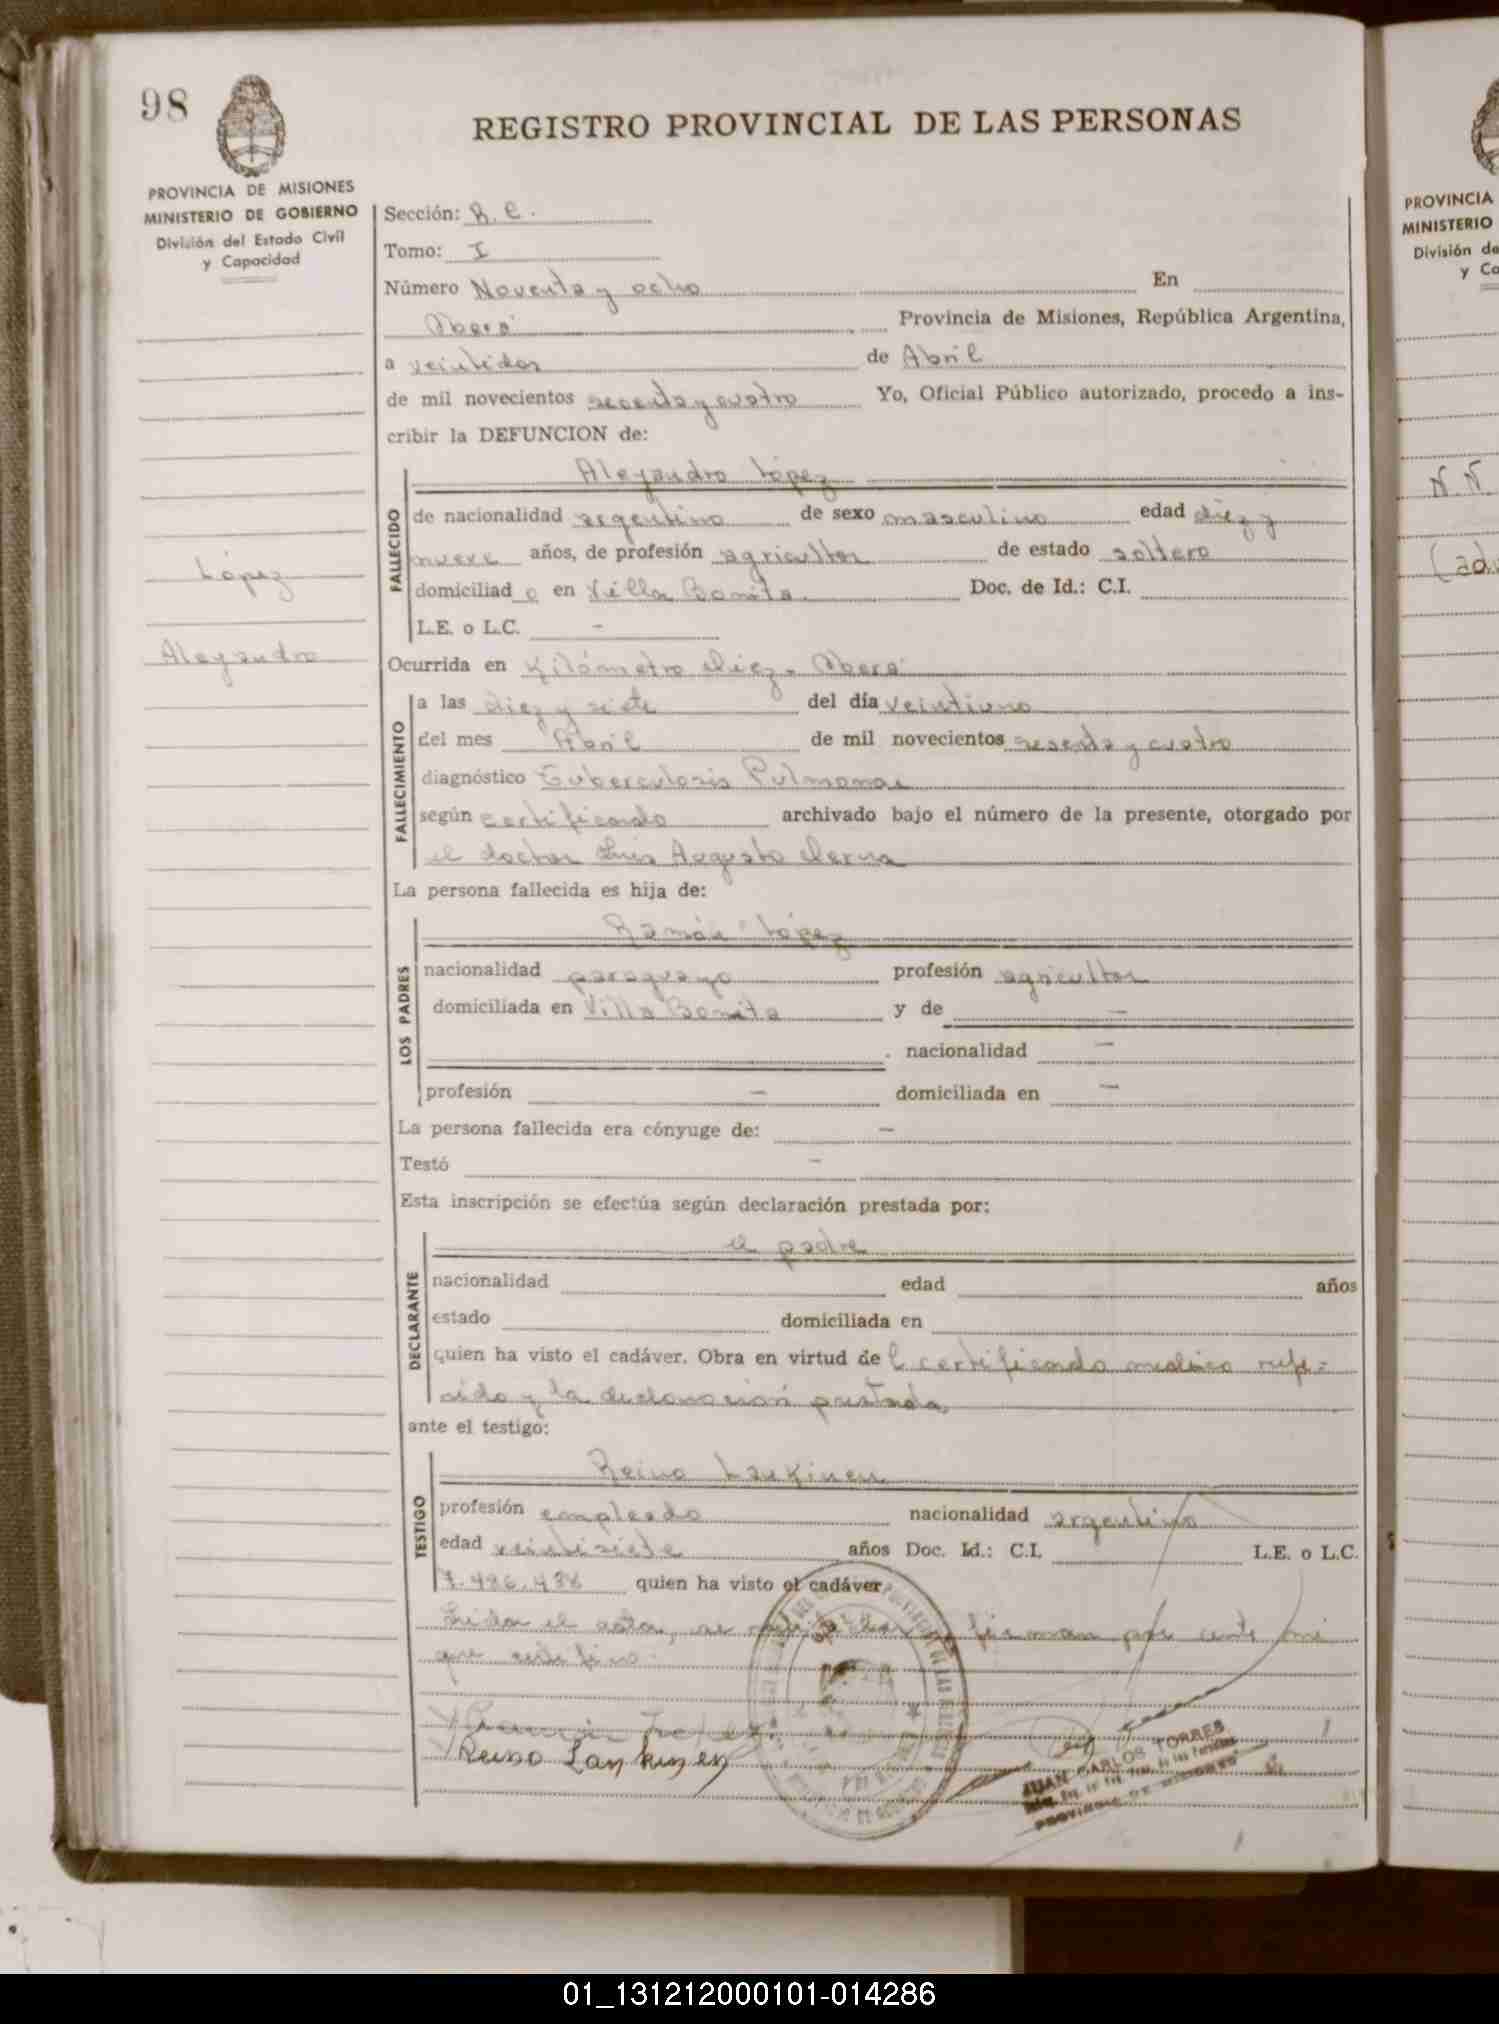 98
REGISTRO PROVINCIAL DE LAS PERSONAS
PROVINCIA DE MISIONES
MINISTERIO DE GOBIERNO
División del Estado Civil
y Capacidad
López
Alejandro
Sección: R. C.
Tomo: I
Número Noventa y ocho En
Oberá Provincia de Misiones, República Argentina,
a veintidos de Abril
de mil novecientos sesenta y cuatro Yo, Oficial Público autorizado, procedo a ins-
cribir la DEFUNCION de:
Alejandro López
FALLECIDO
de nacionalidad argentino de sexo masculino edad diez y
nueve años, de profesión agricultor de estado soltero
domiciliad o en Villa Bonita. Doc. de Id.: C.I.
L.E. o L.C. -
Ocurrida en Kilómetro diez - Oberá
FALLECIMIENTO
a las diez y siete del día veintiuno
del mes Abril de mil novecientos sesenta y cuatro
diagnóstico Tuberculosis Pulmonar
según certificado archivado bajo el número de la presente, otorgado por
el doctor Luis Augusto
La persona fallecida es hija de:
Ramón López
LOS PADRES
nacionalidad paraguayo profesión agricultor
domiciliada en Villa Bonita y de -
nacionalidad -
profesión - domiciliada en -
La persona fallecida era cónyuge de: -
Testó -
Esta inscripción se efectúa según declaración prestada por:
el padre
DECLARANTE
nacionalidad edad años
estado domiciliada en
quien ha visto el cadáver. Obra en virtud de l certificado médico refe=
rido y la declaración prestada.
ante el testigo:
Reino Laukinen
TESTIGO
profesión empleado nacionalidad argentino
edad veintisiete años Doc. Id.: C.I. L.E. o L.C.
7.486.438 quien ha visto el cadáver.
Leída el acta, se firman por ante mi
que certifico.
Ramón Lopez
Reino Laukinen
JUAN CARLOS TORRES
PROVINCIA DE MISIONES
PROVINCIA
MINISTERIO
División de
y Ca
N.N.
(ad
01_131212000101-014286